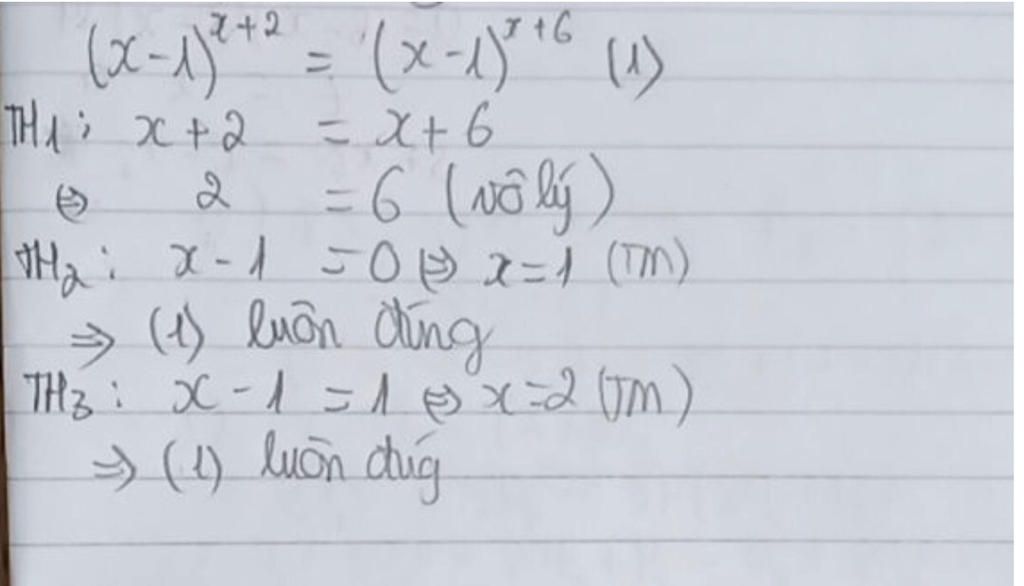 (x-1)^{x+2} = (x-1)^{x+6} (1)
TH1: x+2 = x+6
⇔ 2 = 6 (vô lý)
TH2: x-1 = 0 ⇔ x=1 (TM)
⇒ (1) luôn đúng
TH3: x-1 = 1 ⇔ x=2 (TM)
⇒ (1) luôn đúg